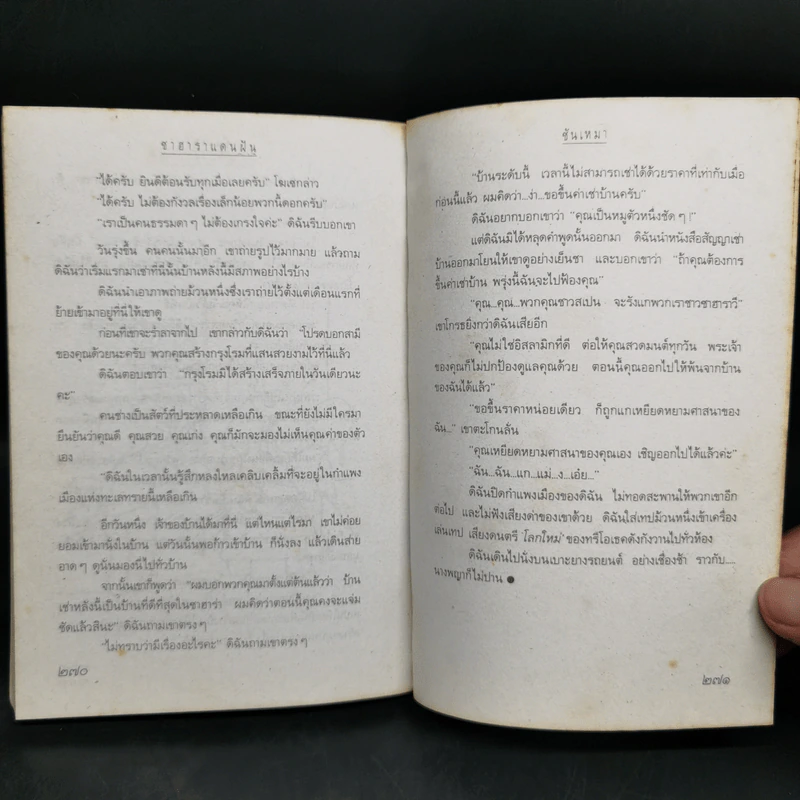 ซาฮาราแดนฝัน
"ได้ครับ ยินดีต้อนรับทุกเมื่อเลยครับ" โฮเซกล่าว
"ได้ครับ ไม่ต้องกังวลเรื่องเล็กน้อยพวกนี้ดอกครับ"
"เราเป็นคนธรรมดาๆ ไม่ต้องเกรงใจค่ะ" ดิฉันรีบบอกเขา
วันรุ่งขึ้น คนคนนั้นมาอีก เขาถ่ายรูปไว้มากมาย แล้วถาม
ดิฉันว่าเริ่มแรกมาเช่าที่นี่นั้นบ้านหลังนี้มีสภาพอย่างไรบ้าง
ดิฉันนำเอาภาพถ่ายม้วนหนึ่งซึ่งเราถ่ายไว้ตั้งแต่เดือนแรกที่
ย้ายเข้ามาอยู่ที่นี่ให้เขาดู
ก่อนที่เขาจะร่ำลาจากไป เขากล่าวกับดิฉันว่า "โปรดบอกสามี
ของคุณด้วยนะครับ พวกคุณสร้างกรุงโรมที่แสนสวยงามไว้ที่นี่แล้ว
ดิฉันตอบเขาว่า "กรุงโรมมิได้สร้างเสร็จภายในวันเดียวนะ
คะ"
คนช่างเป็นสัตว์ที่ประหลาดเหลือเกิน ขณะที่ยังไม่มีใครมา
ยืนยันว่าคุณดี คุณสวย คุณเก่ง คุณก็มักจะมองไม่เห็นคุณค่าของตัว
เอง
"ดิฉันในเวลานั้นรู้สึกหลงใหลเคลิบเคลิ้มที่จะอยู่ในกำแพง
เมืองแห่งทะเลทรายนี้เหลือเกิน
อีกวันหนึ่ง เจ้าของบ้านได้มาที่นี่ แต่ไหนแต่ไรมา เขาไม่ค่อย
ยอมเข้ามานั่งในบ้าน แต่วันนั้นพอก้าวเข้าบ้าน ก็นั่งลง แล้วเดินส่าย
อาดๆ ดูนั่นมองนี่ไปทั่วบ้าน
จากนั้นเขาก็พูดว่า "ผมบอกพวกคุณมาตั้งแต่ต้นแล้วว่า บ้าน
เช่าหลังนี้เป็นบ้านที่ดีที่สุดในซาฮารา ผมคิดว่าตอนนี้คุณคงจะแจ่ม
ชัดแล้วสินะ" ดิฉันถามเขาตรงๆ
"ไม่ทราบว่ามีเรื่องอะไรคะ" ดิฉันถามเขาตรงๆ
๒๗๐
ซันเหมา
"บ้านระดับนี้ เวลานี้ไม่สามารถเช่าได้ด้วยราคาที่เท่ากับเมื่อ
ก่อนนี้แล้ว ผมคิดว่า...ง่า...ขอขึ้นค่าเช่าบ้านครับ"
ดิฉันอยากบอกเขาว่า "คุณเป็นหมูตัวหนึ่งชัดๆ !"
แต่ดิฉันมิได้หลุดคำพูดนั้นออกมา ดิฉันนำหนังสือสัญญาเช่า
บ้านออกมาโยนให้เขาดูอย่างเย็นชา และบอกเขาว่า "ถ้าคุณต้องการ
ขึ้นค่าเช่าบ้าน พรุ่งนี้ฉันจะไปฟ้องคุณ"
"คุณ...คุณ...พวกคุณชาวสเปน จะรังแกพวกเราชาวซาฮาราวี"
เขาโกรธยิ่งกว่าดิฉันเสียอีก
"คุณไม่ใช่อิสลามิกที่ดี ต่อให้คุณสวดมนต์ทุกวัน พระเจ้า
ของคุณก็ไม่ปกป้องดูแลคุณด้วย ตอนนี้คุณออกไปให้พ้นจากบ้าน
ของฉันได้แล้ว"
"ขอขึ้นราคาหน่อยเดียว ก็ถูกแกเหยียดหยามศาสนาของ
ฉัน..." เขาตะโกนลั่น
"คุณเหยียดหยามศาสนาของคุณเอง เชิญออกไปได้แล้วค่ะ"
"ฉัน...ฉัน...แก...แม่...ง...เอ๋ย..."
ดิฉันปิดกำแพงเมืองของดิฉัน ไม่ทอดสะพานให้พวกเขาอีก
ต่อไป และไม่ฟังเสียงด่าของเขาด้วย ดิฉันใส่เทปม้วนหนึ่งเข้าเครื่อง
เล่นเทป เสียงดนตรี 'โลกใหม่' ของทรีโอเชคดังกังวานไปทั่วห้อง
ดิฉันเดินไปนั่งบนเบาะยางรถยนต์ อย่างเชื่องช้า ราวกับ.....
นางพญาก็ไม่ปาน ●
๒๗๑